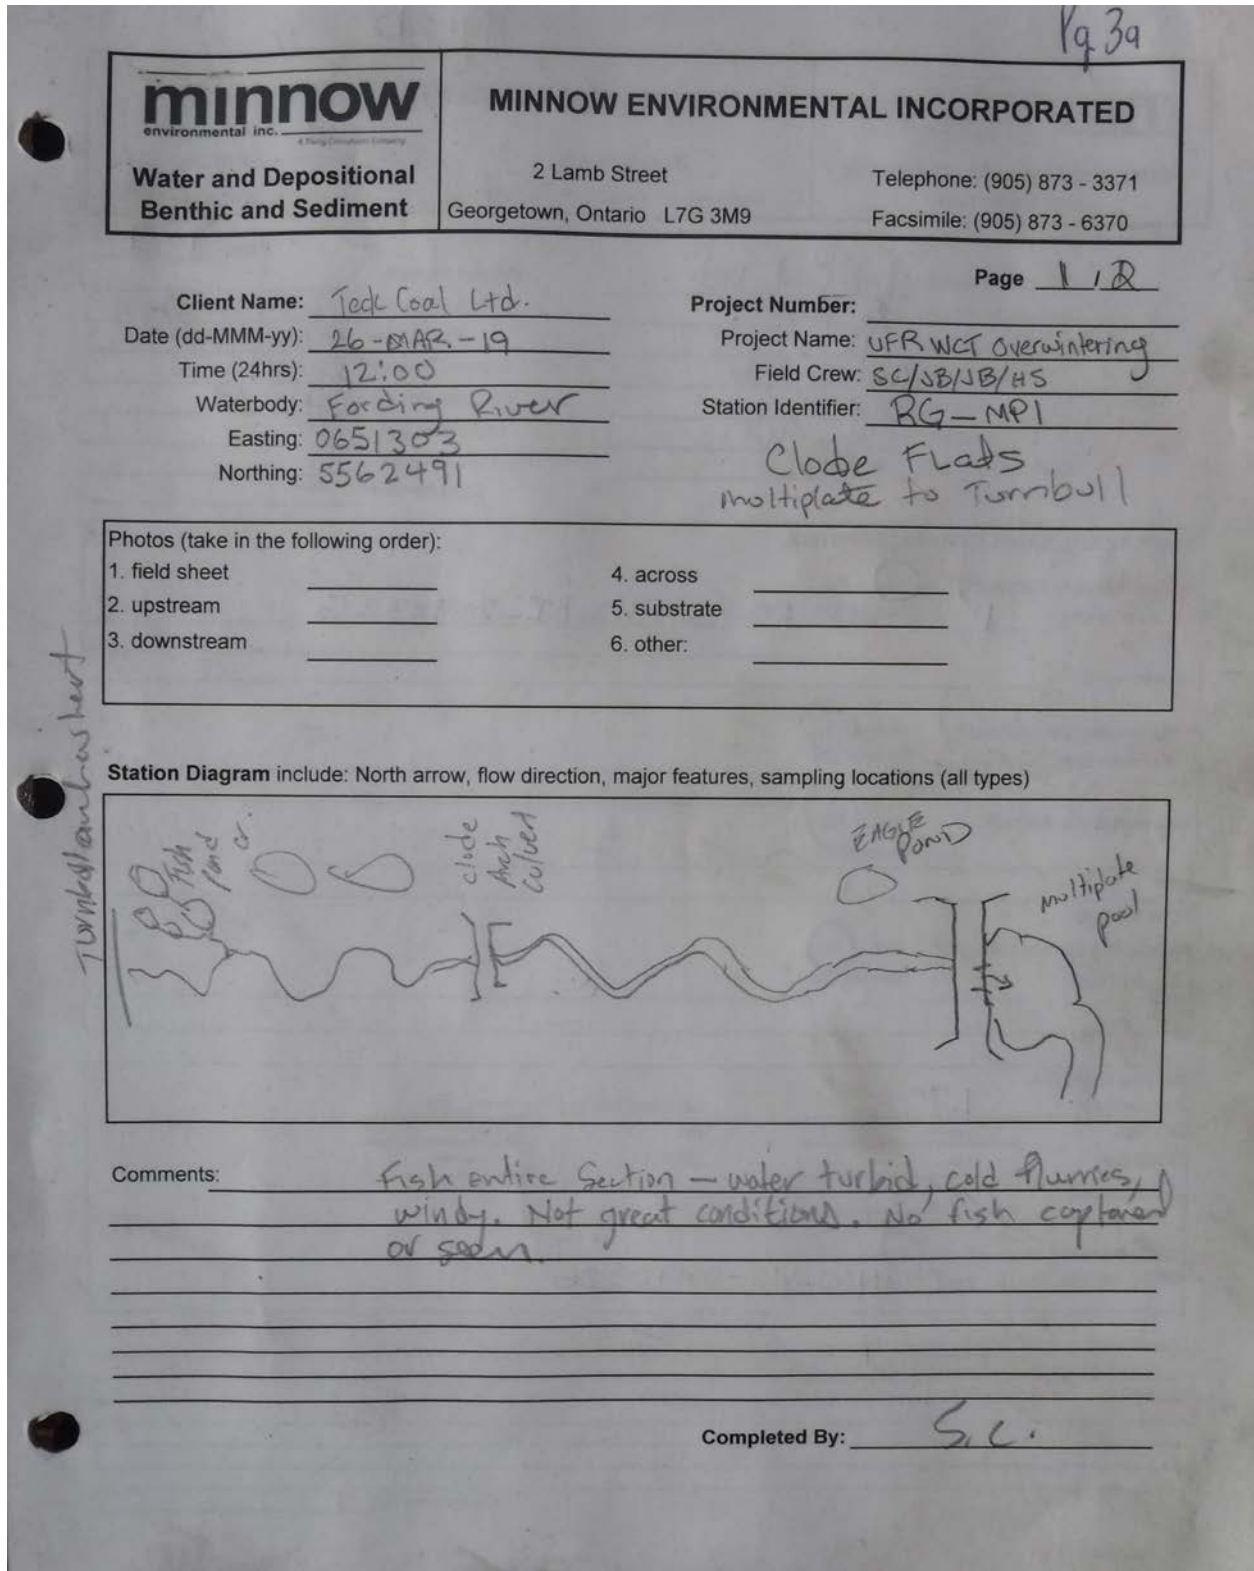 Pg 3a
minnow
environmental inc.
Water and Depositional
Benthic and Sediment
MINNOW ENVIRONMENTAL INCORPORATED
2 Lamb Street
Georgetown, Ontario L7G 3M9
Telephone: (905) 873 - 3371
Facsimile: (905) 873 - 6370
Page 1 / 2
Client Name: Teck Coal Ltd.
Date (dd-MMM-yy): 26-MAR-19
Time (24hrs): 12:00
Waterbody: Fording River
Easting: 0651303
Northing: 5562491
Project Number:
Project Name: UFR WCT Overwintering
Field Crew: SC/JB/JB/HS
Station Identifier: RG-MP1
Clode FLats
multiplate to Turnbull
Photos (take in the following order):
1. field sheet
2. upstream
3. downstream
4. across
5. substrate
6. other:
Station Diagram include: North arrow, flow direction, major features, sampling locations (all types)
Fish
Pond
cr.
clode
Arch
culvert
EAGLE
POND
multiplate
pool
Comments: Fish entire Section - water turbid, cold flurries,
windy. Not great conditions. No fish captured
or seen.
Completed By: S.C.